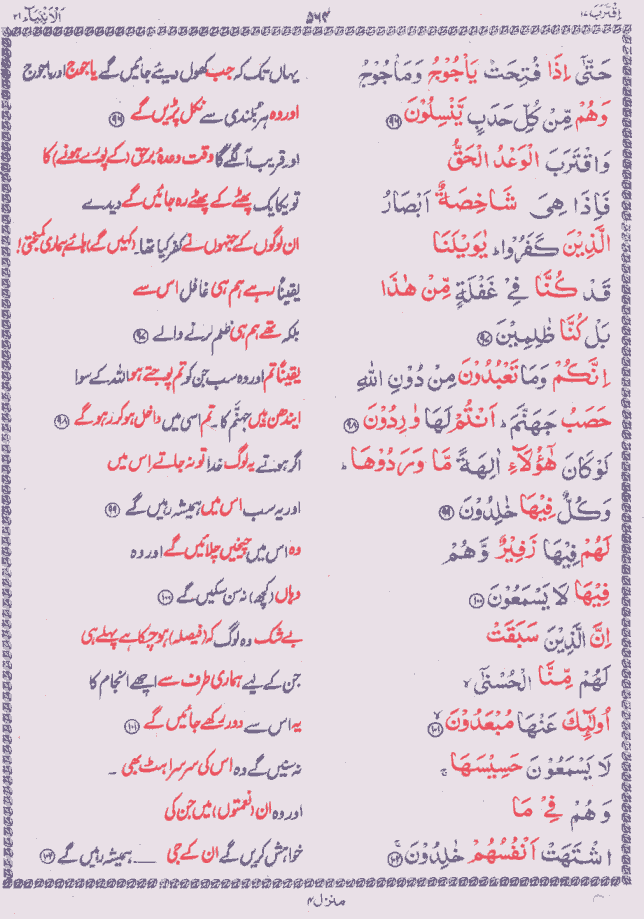 اِقْتَرَبَ ١٧
۵۶۴
اَلْاَنْبِيَآء ٢١
حَتّٰٓى اِذَا فُتِحَتْ يَاْجُوْجُ وَمَاْجُوْجُ
یہاں تک کہ جب کھول دیئے جائیں گے یاجوج اور ماجوج
وَهُمْ مِّنْ كُلِّ حَدَبٍ يَّنْسِلُوْنَ ۹۶
اور وہ ہر بُلندی سے نکل پڑیں گے ۹۶
وَاقْتَرَبَ الْوَعْدُ الْحَقُّ
اور قریب آ لگے گا وقت وعدۂ برحق (کے پورے ہونے) کا
فَاِذَا هِىَ شَاخِصَةٌ اَبْصَارُ
تو یکایک پھٹے کے پھٹے رہ جائیں گے دیدے
الَّذِيْنَ كَفَرُوْا ؕ يٰوَيْلَنَا
ان لوگوں کے جنہوں نے کفر کیا تھا۔ (کہیں گے) ہائے ہماری کمبختی!
قَدْ كُنَّا فِىْ غَفْلَةٍ مِّنْ هٰذَا
یقیناً رہے ہم ہی غافل اس سے
بَلْ كُنَّا ظٰلِمِيْنَ ۹۷
بلکہ تھے ہم ہی ظلم کرنے والے ۹۷
اِنَّكُمْ وَمَا تَعْبُدُوْنَ مِنْ دُوْنِ اللّٰهِ
یقیناً تم اور وہ سب جن کو تم پوجتے ہو اللہ کے سوا
حَصَبُ جَهَنَّمَ ؕ اَنْتُمْ لَهَا وٰرِدُوْنَ ۹۸
ایندھن ہیں جہنّم کا۔ تم اسی میں داخل ہو کر رہو گے ۹۸
لَوْ كَانَ هٰٓؤُلَآءِ اٰلِهَةً مَّا وَرَدُوْهَا ؕ
اگر ہوتے یہ لوگ خدا تو نہ جاتے اس میں
وَكُلٌّ فِيْهَا خٰلِدُوْنَ ۹۹
اور یہ سب اس میں ہمیشہ رہیں گے ۹۹
لَهُمْ فِيْهَا زَفِيْرٌ وَّهُمْ
وہ اس میں چیخیں چلائیں گے اور وہ
فِيْهَا لَا يَسْمَعُوْنَ ۱۰۰
وہاں (کچھ) نہ سن سکیں گے ۱۰۰
اِنَّ الَّذِيْنَ سَبَقَتْ
بے شک وہ لوگ کہ (فیصلہ) ہو چکا ہے پہلے ہی
لَهُمْ مِّنَّا الْحُسْنٰٓى ۙ
جن کے لیے ہماری طرف سے اچھے انجام کا
اُولٰٓئِكَ عَنْهَا مُبْعَدُوْنَ ۙ ۱۰۱
یہ اس سے دور رکھے جائیں گے ۱۰۱
لَا يَسْمَعُوْنَ حَسِيْسَهَا ۚ
نہ سنیں گے وہ اس کی سرسراہٹ بھی ۔
وَهُمْ فِىْ مَا
اور وہ ان (نعمتوں) میں جن کی
اشْتَهَتْ اَنْفُسُهُمْ خٰلِدُوْنَ ۚ ۱۰۲
خواہش کریں گے ان کے جی ـــــ ہمیشہ رہیں گے ۱۰۲
منزل ۴